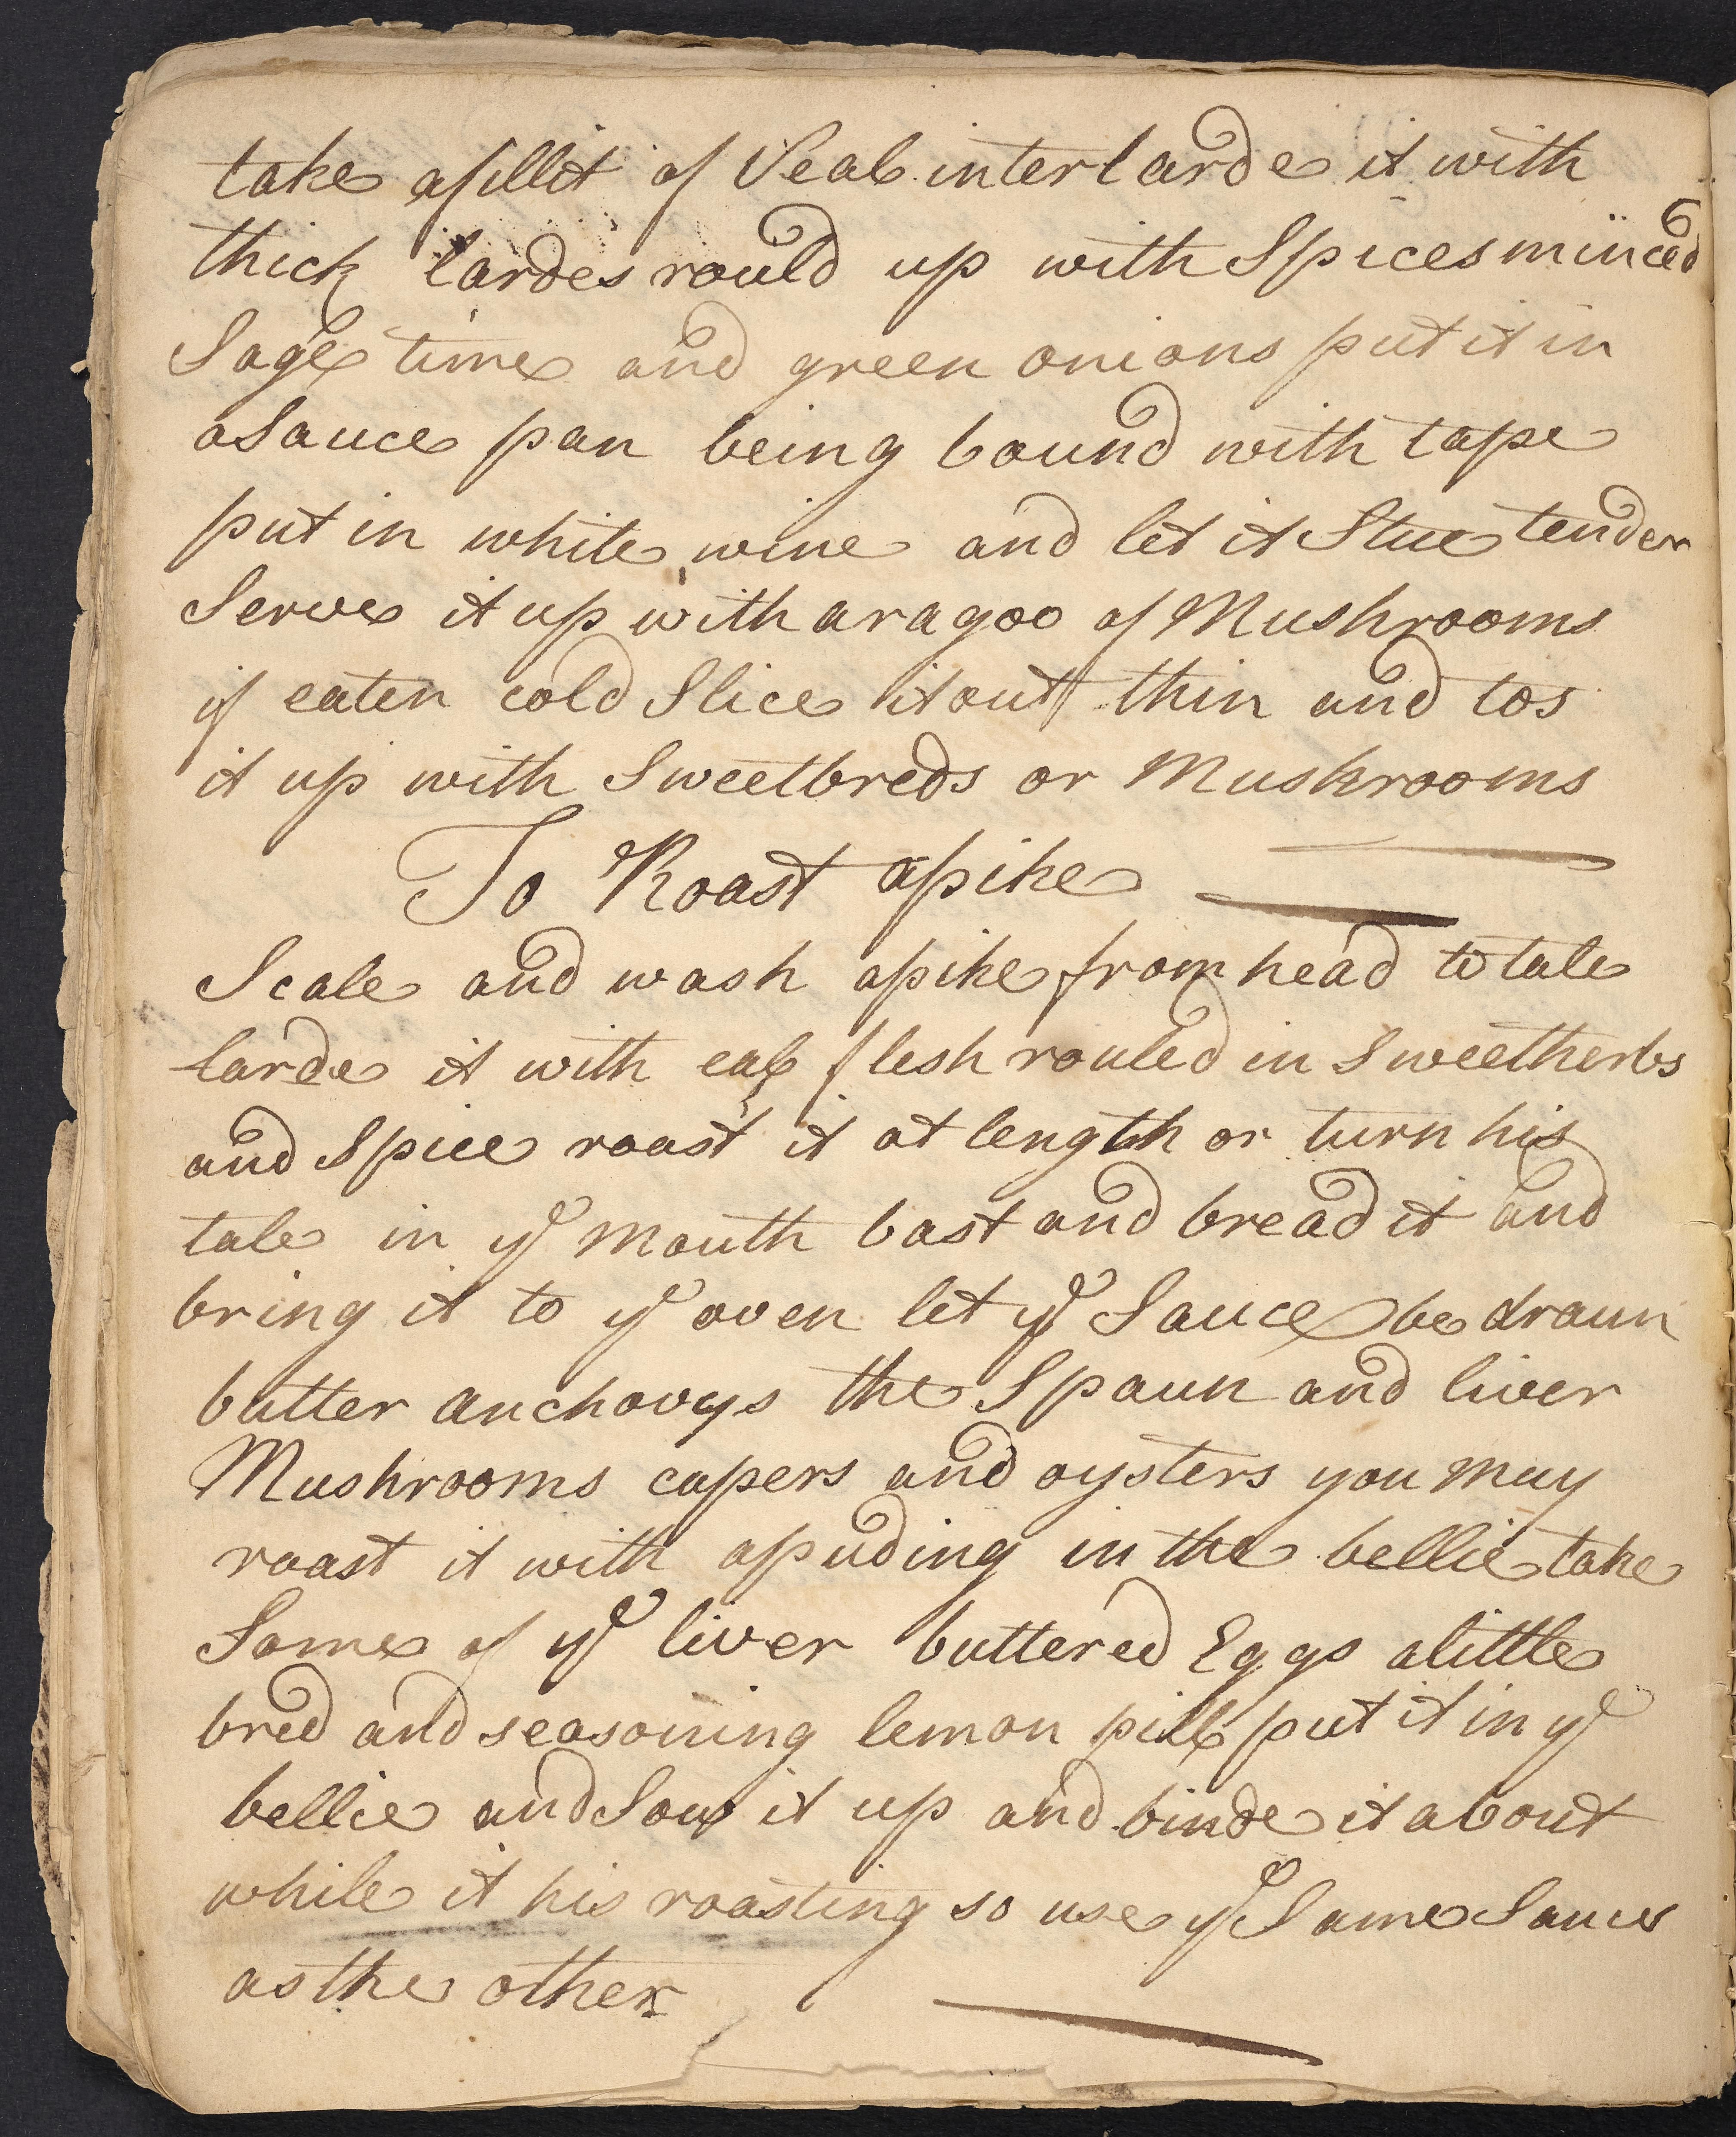 take a fillit of Veal interlarde it with
thick lardes rould up with Spices minced
Sage time and green onions put it in
a Sauce pan being bound with tape
put in white wine and let it Stue tender
Serve it up with a ragoo of Mushrooms
if eaten cold Slice it out thin and tos
it up with Sweetbreds or Mushrooms
To Roast a pike
Scale and wash a pike from head to tale
larde it with eal flesh rouled in Sweet herbs
and Spice roast it at length or turn his
tale in ye Mouth bast and bread it and
bring it to ye oven let ye Sauce be draun
butter anchovys the Spaun and liver
Mushrooms capers and oysters you may
roast it with a puding in the bellie take
Some of ye liver buttered Eggs a little
bred and seasoning lemon pill put it in ye
bellie and Sow it up and binde it about
while it his roasting so use ye Same Sauce
as the other